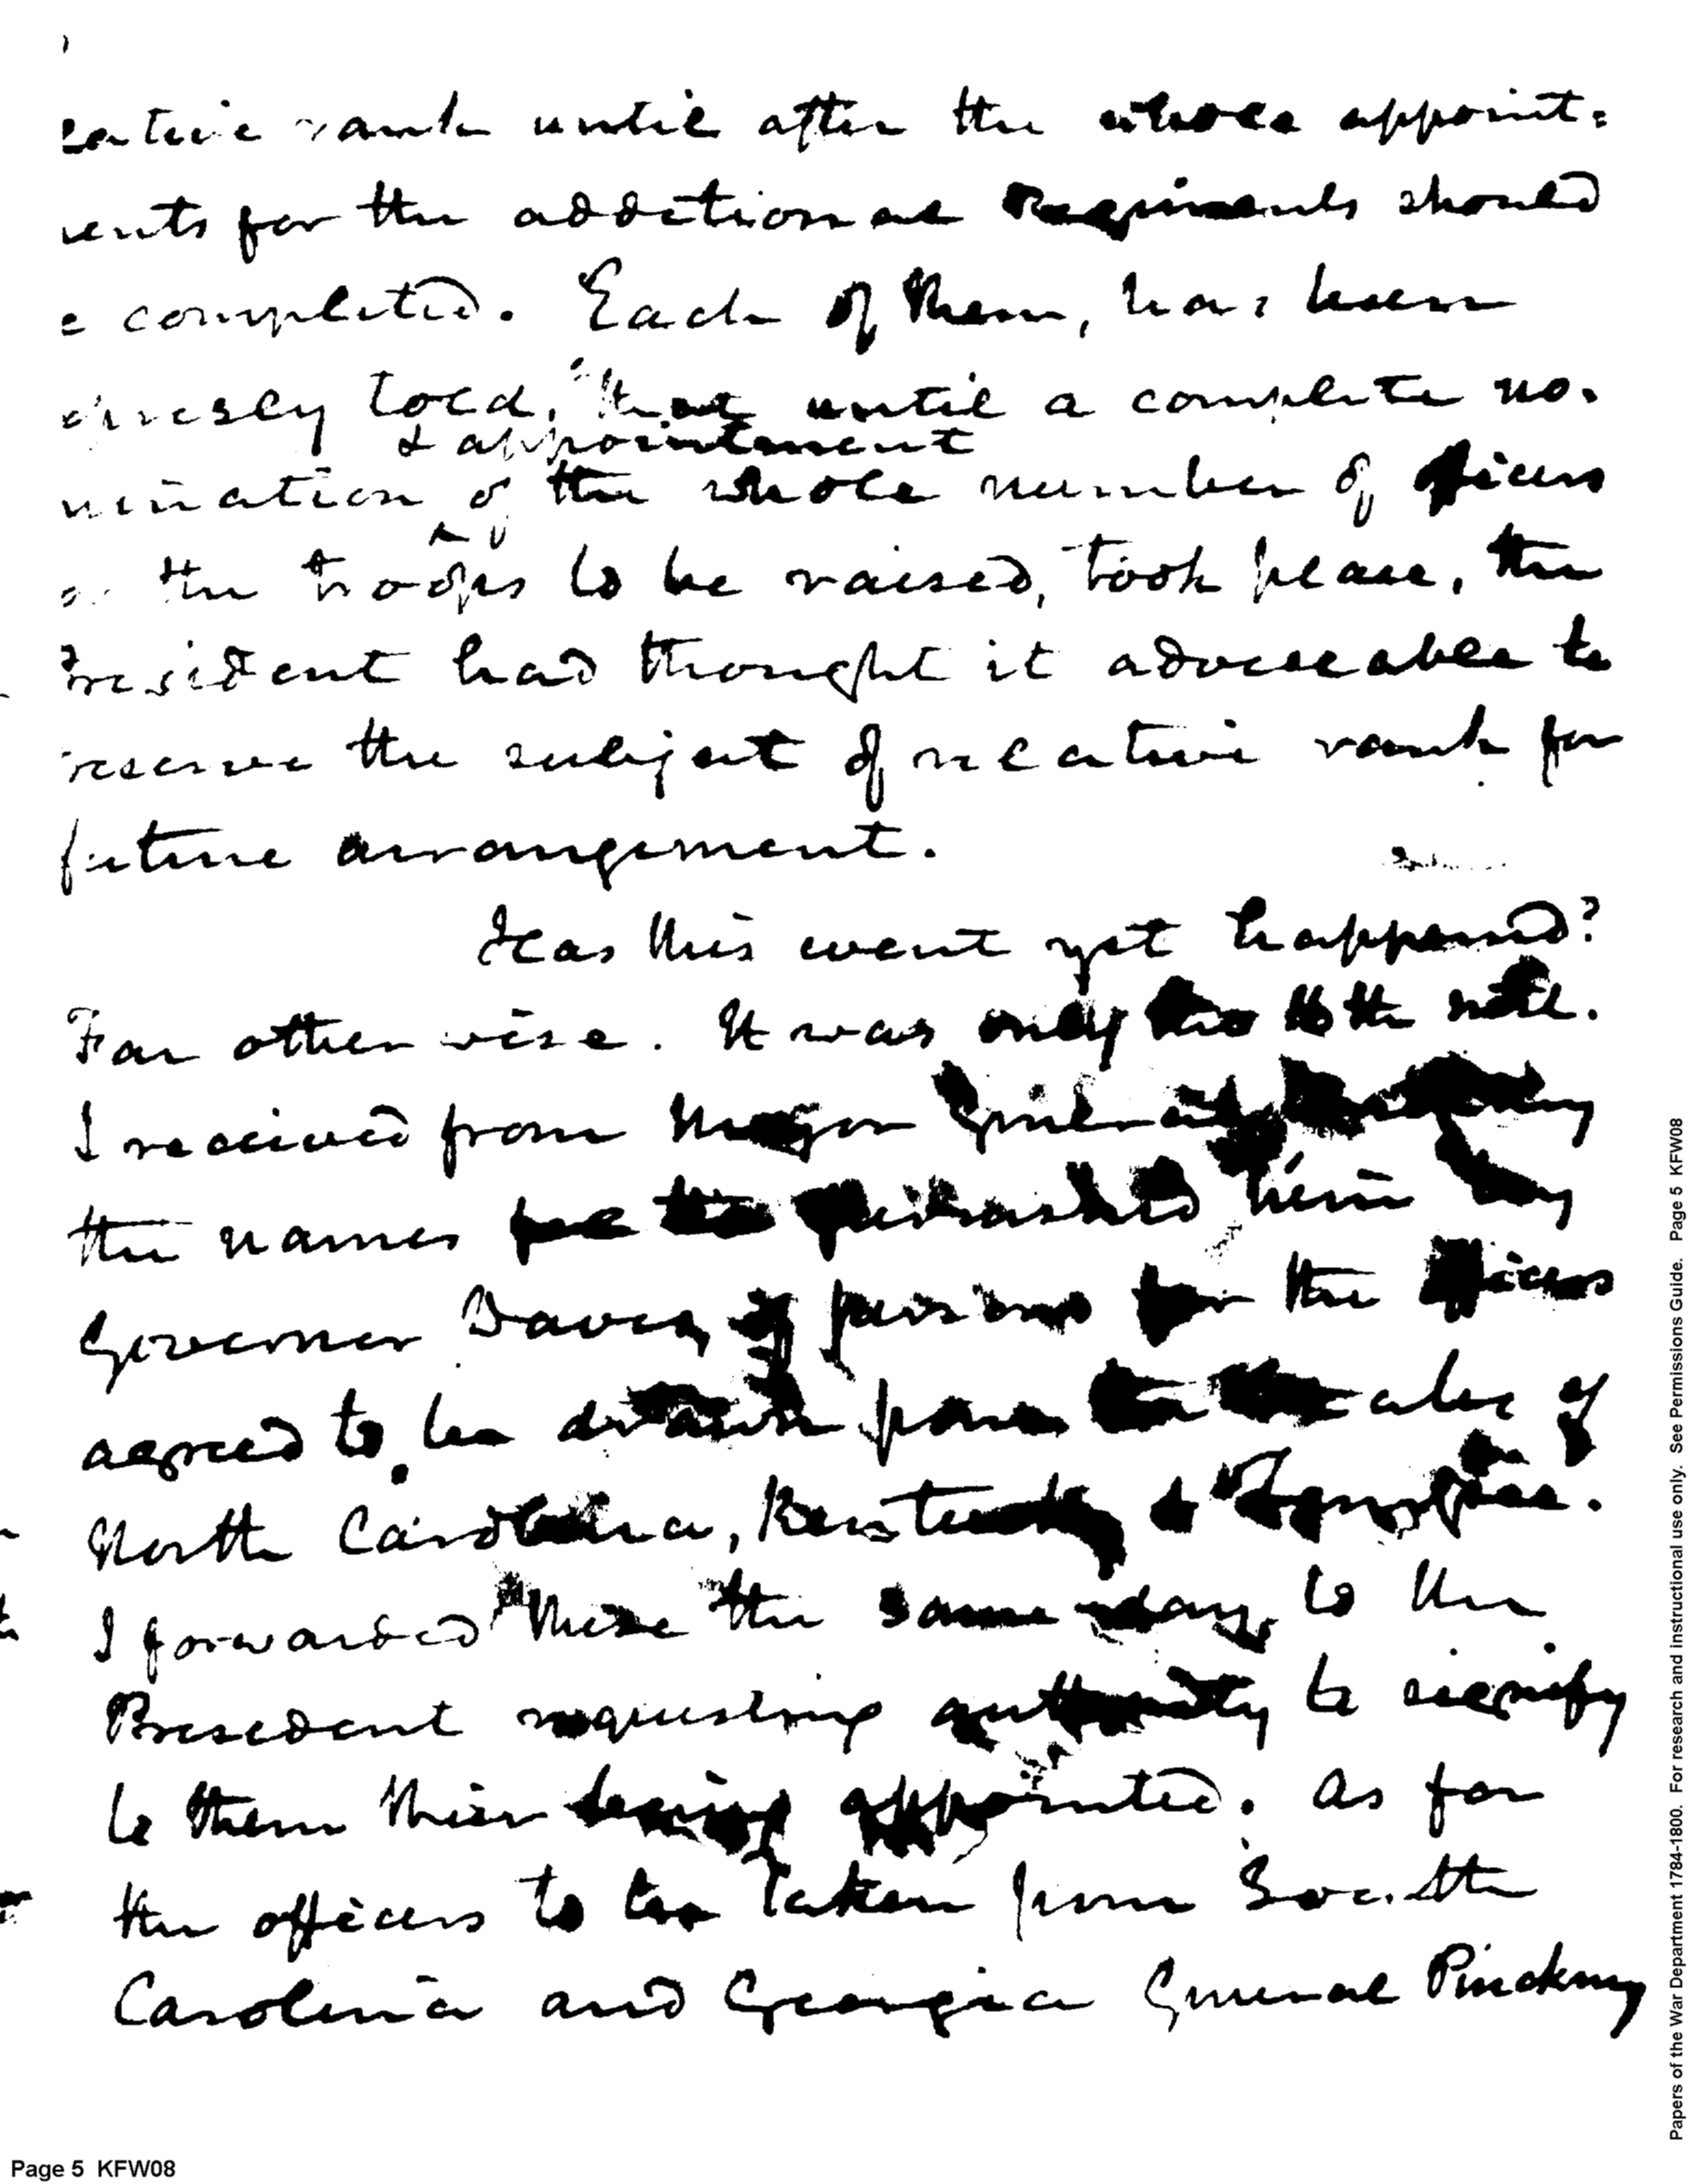 lative rank until after the whole appoint=
ments for the additional Regiments should
e completed. Each of them, has been
expressly told, that until a complete no-
& appointment
mination of the whole number of officers
the troops to be raised, took place, the
President had thought it adviseable to
reserve the subject of relative rank for
future arrangement.
Has this event yet happened?
Far otherwise. It was only the 16th
I received from Major General Pinckney
the names him by
Governor Davie, of persons for the offices
agreed to be drawn from the of
North Carolina, Kentucky & Tennessee.
I forwarded these the same day, to the
President requesting authority to signify
to them their being appointed. As for
the officers to be taken from South
Carolina and Georgia General Pinckney
Page 5 KFW08
Papers of the War Department 1784-1800. For research and instructional use only. See Permissions Guide. Page 5 KFW08